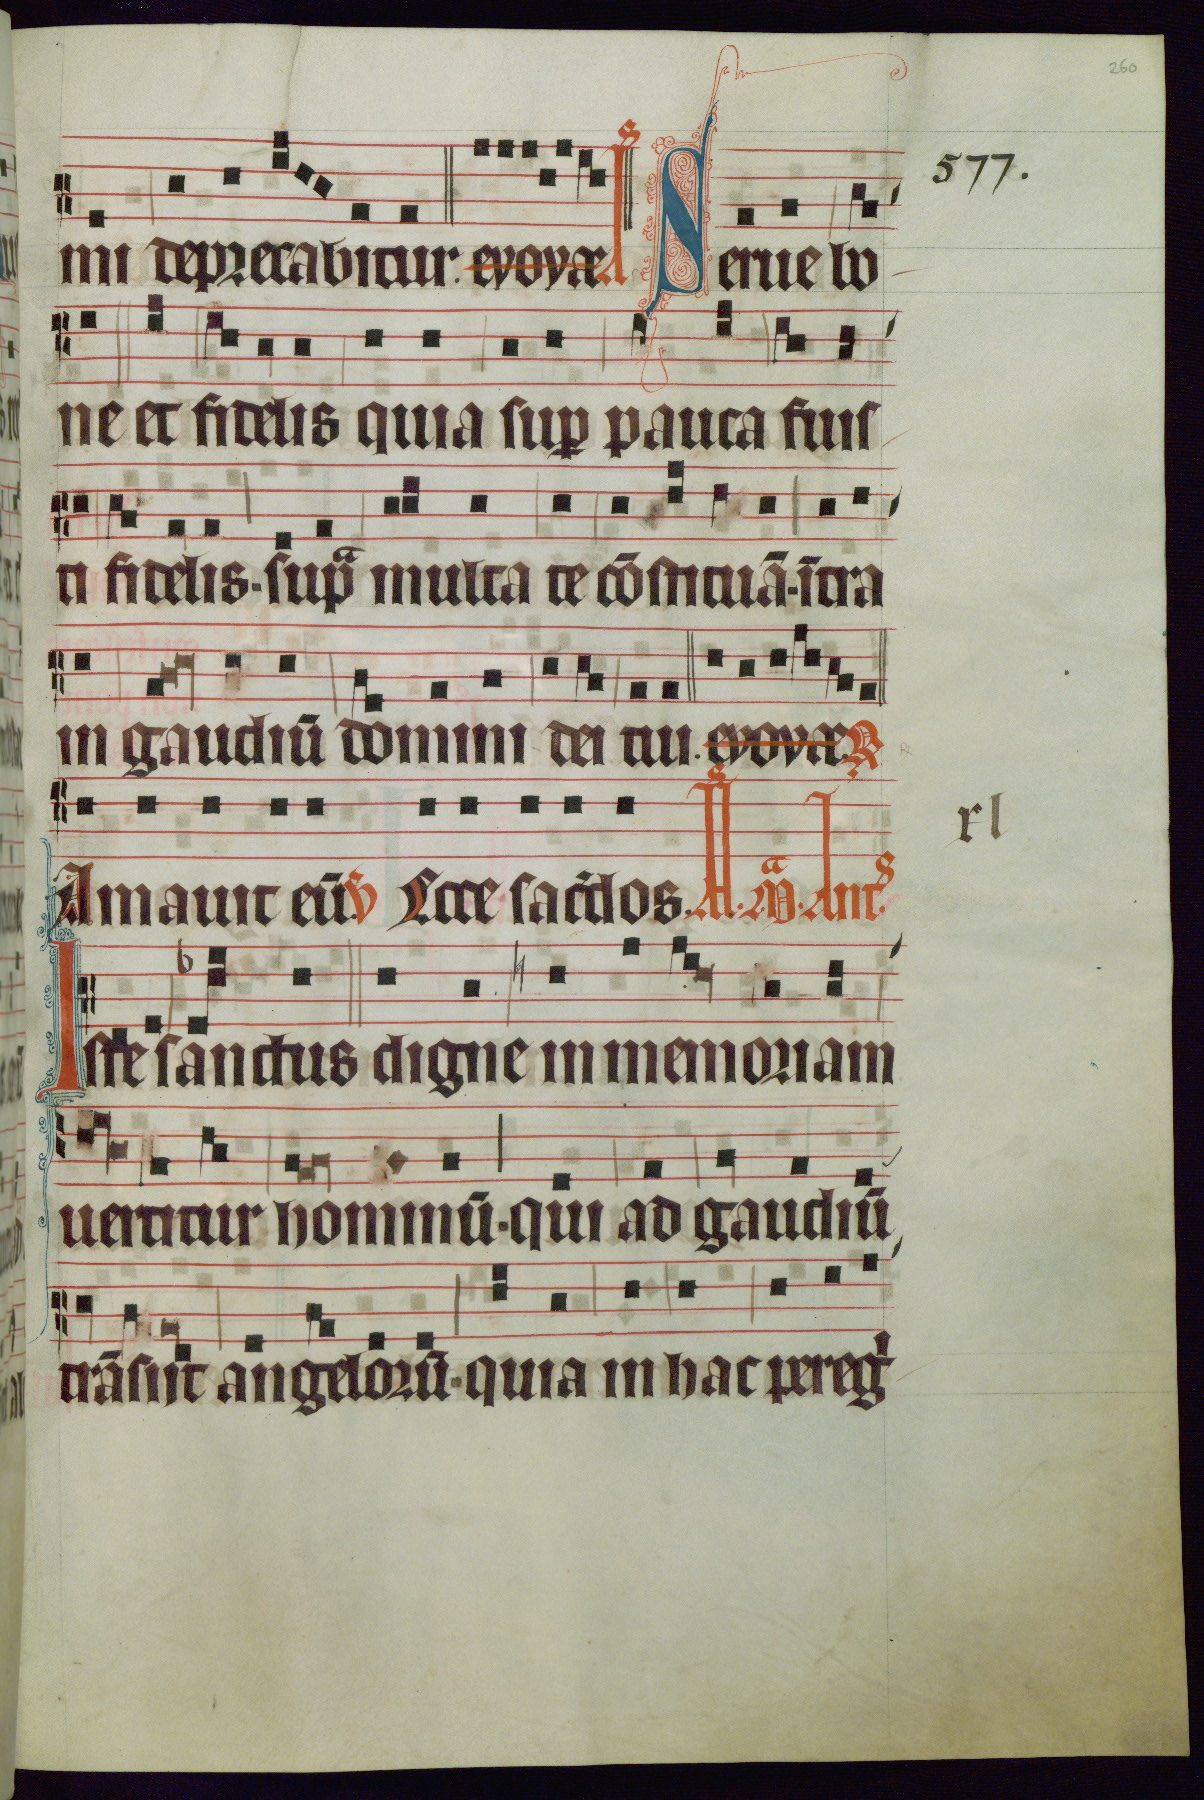 260
577.
mi deprecabitur. evovae A s Serue bo
ne et fidelis quia sup pauca fuis
ti fidelis. supᵃ multa te cōstituā. ītra
in gaudiū domini dei tui. evovae R
xl
Amauit eū. V Ecce sacdos. Ad. Mᵃ. Antˢ
Iste sanctus digne in memoriam
uertitur hominū. qui ad gaudiū
trāsiit angelorū. quia in hac pereg